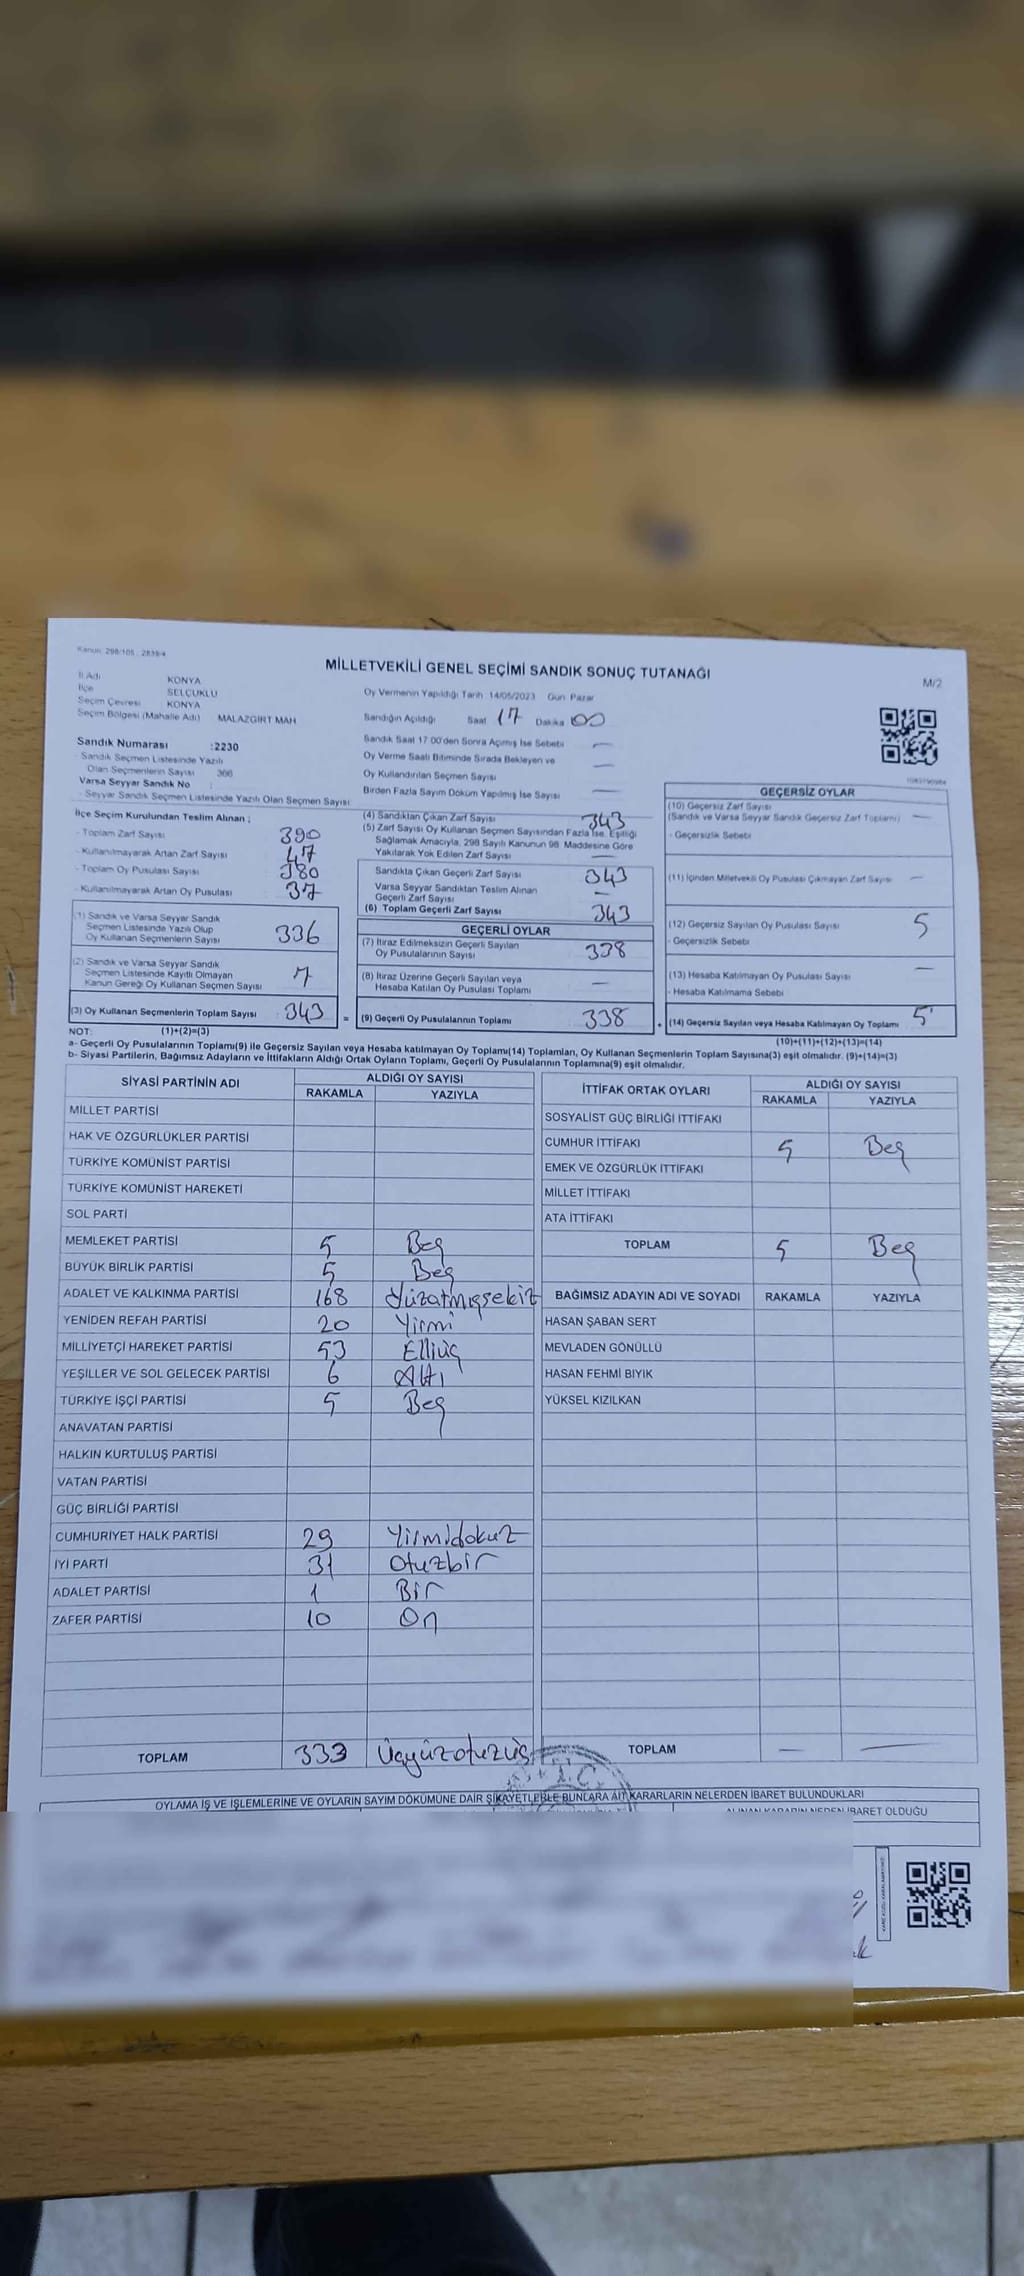 Kanun: 298/105 , 2839/4
MİLLETVEKİLİ GENEL SEÇİMİ SANDIK SONUÇ TUTANAĞI
M/2
İl Adı KONYA
İlçe SELÇUKLU
Seçim Çevresi KONYA
Seçim Bölgesi (Mahalle Adı) MALAZGİRT MAH
Sandık Numarası :2230
- Sandık Seçmen Listesinde Yazılı
Olan Seçmenlerin Sayısı 366
Varsa Seyyar Sandık No :
- Seyyar Sandık Seçmen Listesinde Yazılı Olan Seçmen Sayısı
Oy Vermenin Yapıldığı Tarih 14/05/2023 Gün Pazar
Sandığın Açıldığı Saat 17 Dakika 00
Sandık Saat 17:00'den Sonra Açılmış İse Sebebi —
Oy Verme Saati Bitiminde Sırada Bekleyen ve
Oy Kullandırılan Seçmen Sayısı —
Birden Fazla Sayım Döküm Yapılmış İse Sayısı —
İlçe Seçim Kurulundan Teslim Alınan ;
- Toplam Zarf Sayısı 390
- Kullanılmayarak Artan Zarf Sayısı 47
- Toplam Oy Pusulası Sayısı 380
- Kullanılmayarak Artan Oy Pusulası 37
(1) Sandık ve Varsa Seyyar Sandık
Seçmen Listesinde Yazılı Olup
Oy Kullanan Seçmenlerin Sayısı 336
(2) Sandık ve Varsa Seyyar Sandık
Seçmen Listesinde Kayıtlı Olmayan
Kanun Gereği Oy Kullanan Seçmen Sayısı 7
(3) Oy Kullanan Seçmenlerin Toplam Sayısı 343 =
(4) Sandıktan Çıkan Zarf Sayısı 343
(5) Zarf Sayısı Oy Kullanan Seçmen Sayısından Fazla İse, Eşitliği
Sağlamak Amacıyla, 298 Sayılı Kanunun 98. Maddesine Göre
Yakılarak Yok Edilen Zarf Sayısı —
Sandıkta Çıkan Geçerli Zarf Sayısı 343
Varsa Seyyar Sandıktan Teslim Alınan
Geçerli Zarf Sayısı —
(6) Toplam Geçerli Zarf Sayısı 343
GEÇERLİ OYLAR
(7) İtiraz Edilmeksizin Geçerli Sayılan
Oy Pusulalarının Sayısı 338
(8) İtiraz Üzerine Geçerli Sayılan veya
Hesaba Katılan Oy Pusulası Toplamı —
(9) Geçerli Oy Pusulalarının Toplamı 338 +
GEÇERSİZ OYLAR
(10) Geçersiz Zarf Sayısı
(Sandık ve Varsa Seyyar Sandık Geçersiz Zarf Toplamı) —
- Geçersizlik Sebebi
(11) İçinden Milletvekili Oy Pusulası Çıkmayan Zarf Sayısı —
(12) Geçersiz Sayılan Oy Pusulası Sayısı 5
- Geçersizlik Sebebi
(13) Hesaba Katılmayan Oy Pusulası Sayısı —
- Hesaba Katılmama Sebebi
(14) Geçersiz Sayılan veya Hesaba Katılmayan Oy Toplamı 5
NOT: (1)+(2)=(3)
(10)+(11)+(12)+(13)=(14)
a- Geçerli Oy Pusulalarının Toplamı(9) ile Geçersiz Sayılan veya Hesaba katılmayan Oy Toplamı(14) Toplamları, Oy Kullanan Seçmenlerin Toplam Sayısına(3) eşit olmalıdır. (9)+(14)=(3)
b- Siyasi Partilerin, Bağımsız Adayların ve İttifakların Aldığı Ortak Oyların Toplamı, Geçerli Oy Pusulalarının Toplamına(9) eşit olmalıdır.
SİYASİ PARTİNİN ADI ALDIĞI OY SAYISI
RAKAMLA YAZIYLA
MİLLET PARTİSİ
HAK VE ÖZGÜRLÜKLER PARTİSİ
TÜRKİYE KOMÜNİST PARTİSİ
TÜRKİYE KOMÜNİST HAREKETİ
SOL PARTİ
MEMLEKET PARTİSİ 5 Beş
BÜYÜK BİRLİK PARTİSİ 5 Beş
ADALET VE KALKINMA PARTİSİ 168 Yüzatmışsekiz
YENİDEN REFAH PARTİSİ 20 Yirmi
MİLLİYETÇİ HAREKET PARTİSİ 53 Elliüç
YEŞİLLER VE SOL GELECEK PARTİSİ 6 Altı
TÜRKİYE İŞÇİ PARTİSİ 5 Beş
ANAVATAN PARTİSİ
HALKIN KURTULUŞ PARTİSİ
VATAN PARTİSİ
GÜÇ BİRLİĞİ PARTİSİ
CUMHURİYET HALK PARTİSİ 29 Yirmidokuz
İYİ PARTİ 31 Otuzbir
ADALET PARTİSİ 1 Bir
ZAFER PARTİSİ 10 On
TOPLAM 333 Üçyüzotuzüç
İTTİFAK ORTAK OYLARI ALDIĞI OY SAYISI
RAKAMLA YAZIYLA
SOSYALİST GÜÇ BİRLİĞİ İTTİFAKI
CUMHUR İTTİFAKI 5 Beş
EMEK VE ÖZGÜRLÜK İTTİFAKI
MİLLET İTTİFAKI
ATA İTTİFAKI
TOPLAM 5 Beş
BAĞIMSIZ ADAYIN ADI VE SOYADI RAKAMLA YAZIYLA
HASAN ŞABAN SERT
MEVLADEN GÖNÜLLÜ
HASAN FEHMİ BIYIK
YÜKSEL KIZILKAN
TOPLAM — —
T.C.
OYLAMA İŞ VE İŞLEMLERİNE VE OYLARIN SAYIM DÖKÜMÜNE DAİR ŞİKAYETLERLE BUNLARA AİT KARARLARIN NELERDEN İBARET BULUNDUKLARI
ALINAN KARARIN NEDEN İBARET OLDUĞU